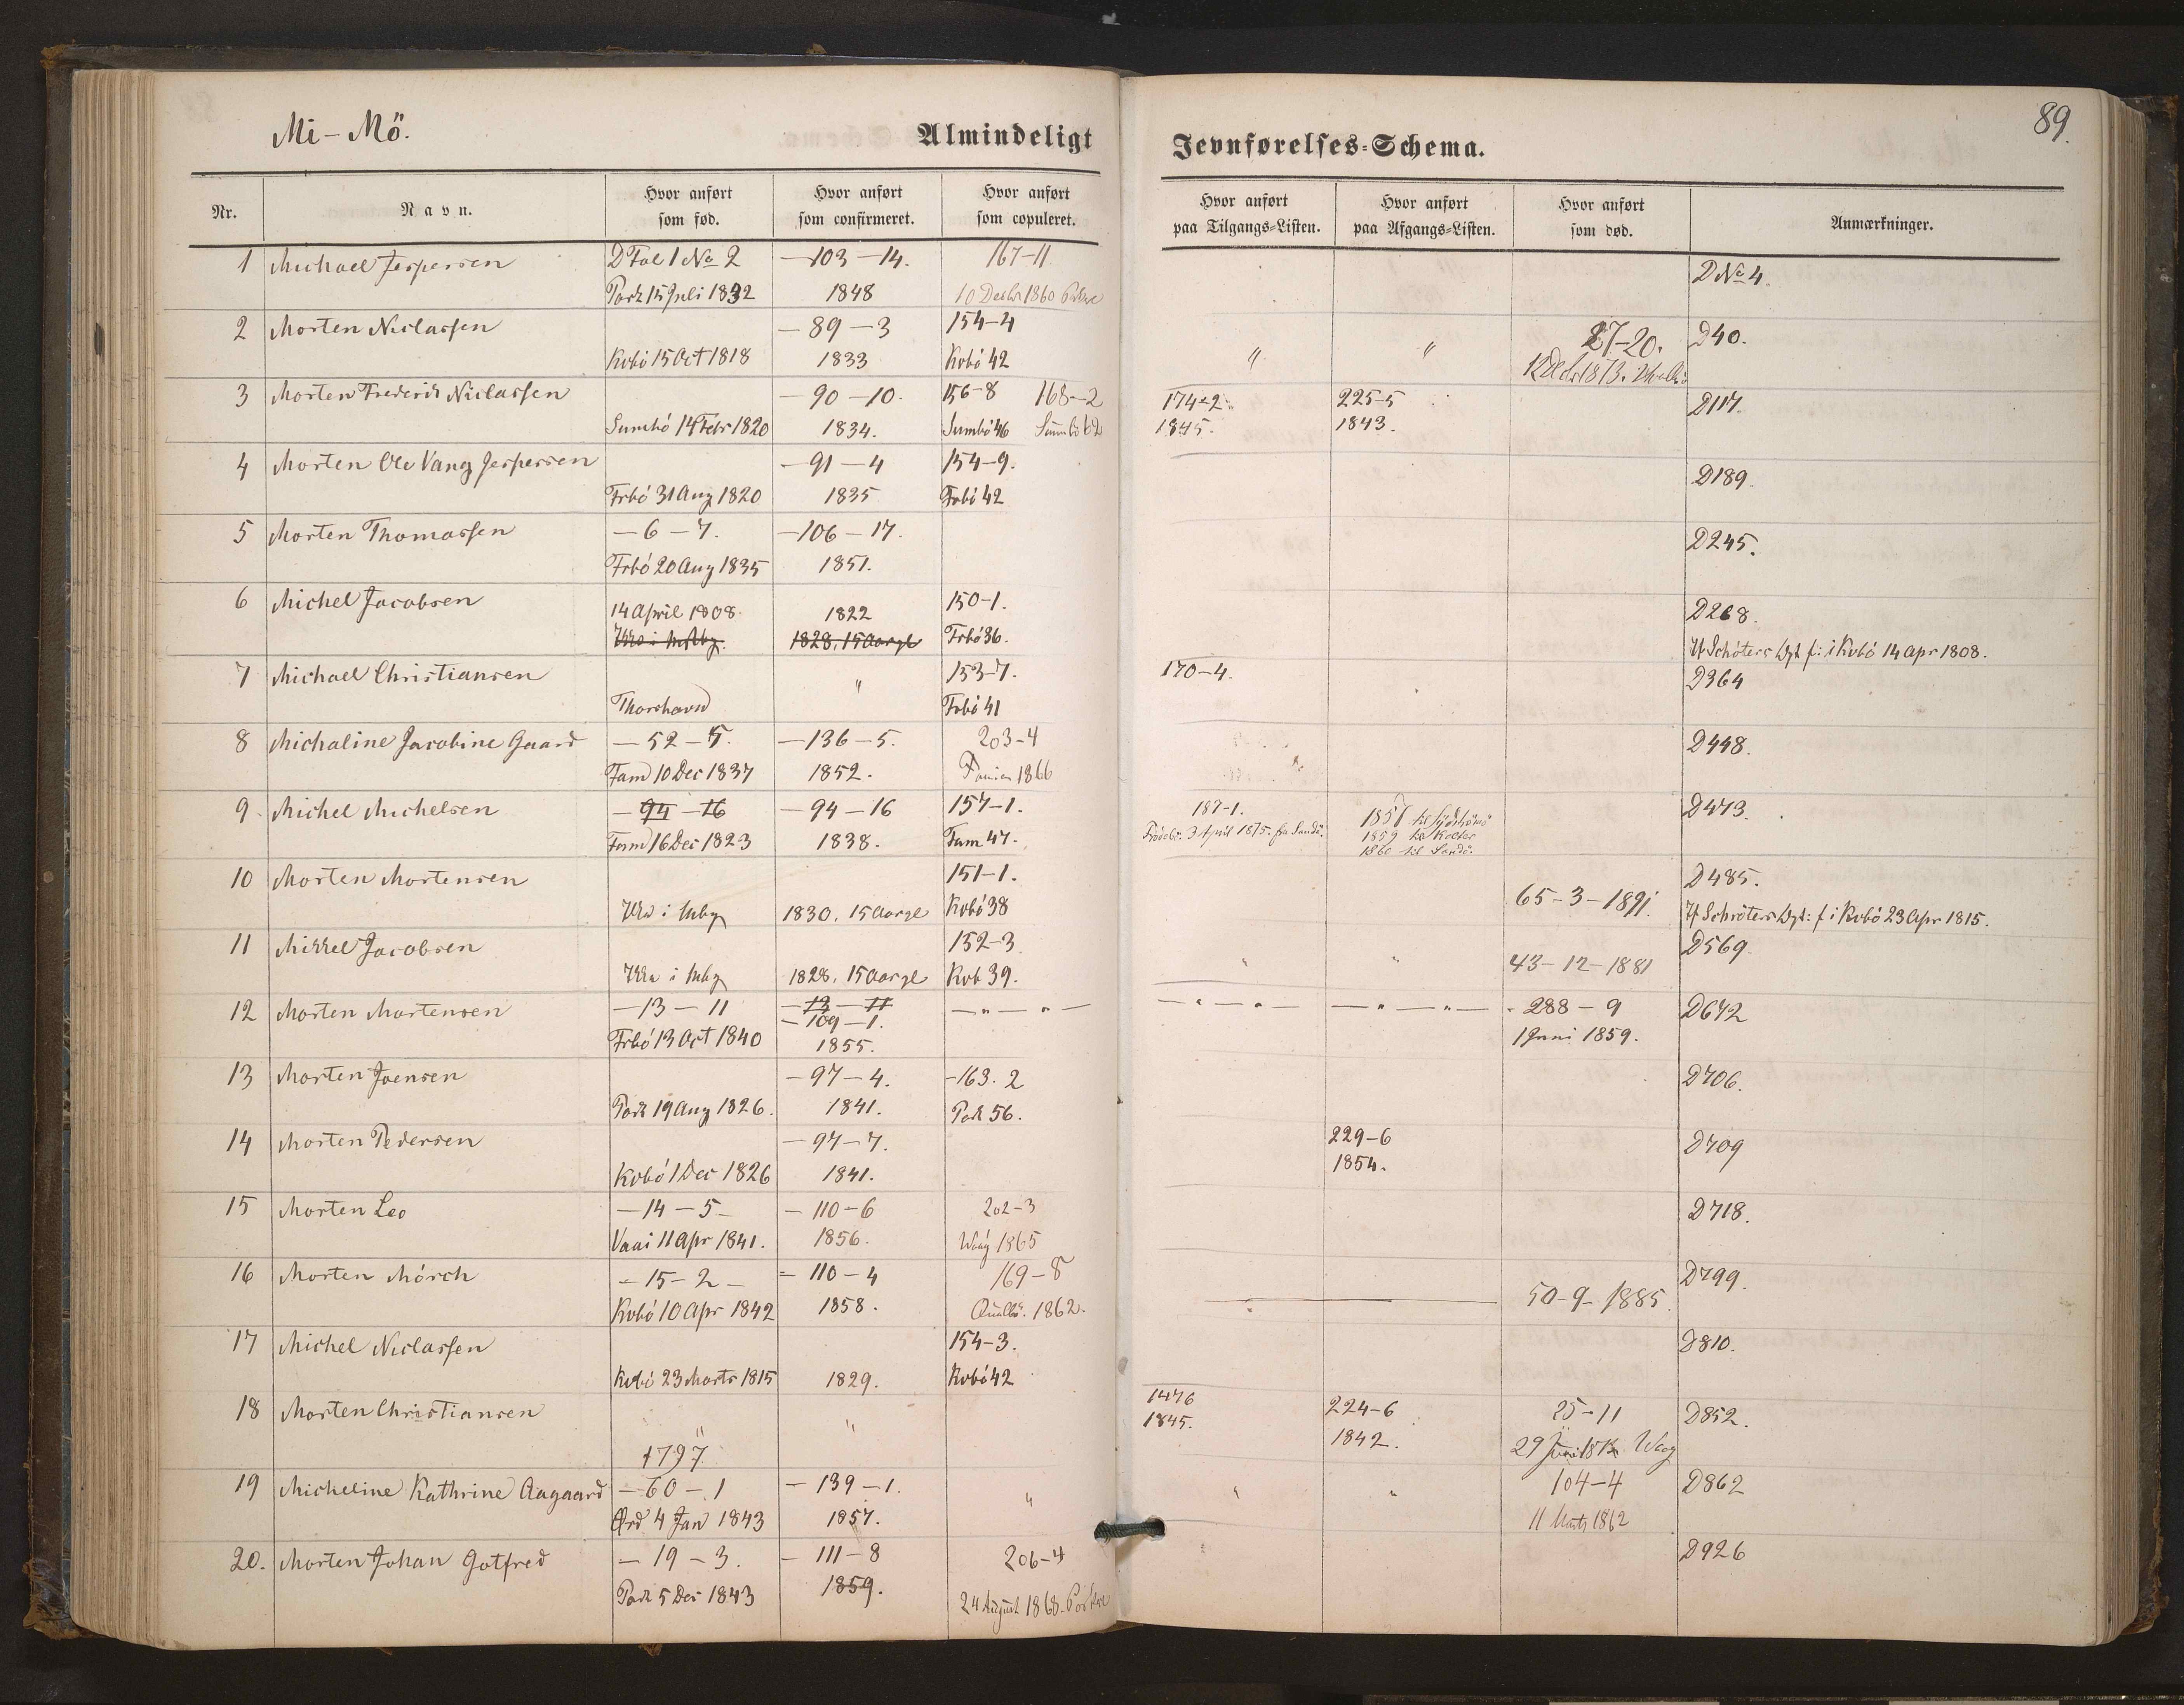 Mi-Mö.
Almindeligt Jevnførelses-Schema.
89.
Nr.
Navn.
Hvor anført som fød.
Hvor anført som confirmeret.
Hvor anført som copuleret.
Hvor anført paa Tilgangs-Listen.
Hvor anført paa Afgangs-Listen.
Hvor anført som død.
Anmærkninger.
1 Michael Jespersen D Fol 1 No 2 —103—14. 167-11 D No 4.
Pork 15 Juli 1832 1848 10 Decbr 1860
2 Morten Niclassen —89—3 154-4 " " 27-20. D40.
Kvbö 15 Oct 1818 1833 Kvbö 42
3 Morten Frederik Niclassen —90—10. 156-8 168-2 174-2 225-5 D117.
Sumbö 14 Febr 1820 1834. Sumbö 46 Sumbö 62 1845. 1843.
4 Morten Ole Vang Jespersen —91—4 154-9. D189.
Frbö 31 Aug 1820 1835 Frbö 42
5 Morten Thomassen —6—7. —106—17. D245.
Frbö 20 Aug 1835 1851.
6 Michel Jacobsen 14 April 1808. 1822 150-1. D268.
1828, 15 Aargl Frbö 36. Schöters f: i Kvbö 14 Apr 1808.
7 Michael Christiansen " 153-7. 170-4. D364
Thorshavn Frbö 41
8 Michaline Jacobine Gaard —52—5. —136—5. 203-4 D448.
Fam 10 Dec 1837 1852. 1866
9 Michel Michelsen —94—16 —94—16 157-1. 187-1. 1857 til D473.
Fam 16 Dec 1823 1838. Fam 47. 3 April 1875. fra Sandö. 1859 1860 til Sandö.
10 Morten Mortensen 151-1. 65-3-1891. D485.
1830, 15 Aargl Kvbö 38 Schröters f i Kvbö 23 Apr 1815.
11 Mikkel Jacobsen 152-3 " " 43-12-1881 D569.
1828, 15 Aargl Kvb 39.
12 Morten Mortensen —13—11 —13—11 —"—"— —"—"— —"—"— -288-9 D672
—109—1.
Frbö 13 Oct 1840 1855. 1 Juni 1859.
13 Morten Joensen —97—4. -163. 2 D706.
Pork 19 Aug 1826. 1841. Pork 56.
14 Morten Pedersen —97—7. 229-6 D709
Kvbö 1 Dec 1826 1841. 1854.
15 Morten Leo —14—5— —110—6 202-3 D718.
Vaai 11 Apr 1841. 1856. 1865
16 Morten Mörch —15—2— —110—4 169-8 50-9-1885. D799.
Kvbö 10 Apr 1842 1858. Qualbö. 1862.
17 Michel Niclassen 154-3. D810.
Kvbö 23 Marts 1815 1829. Kvbö 42
18 Morten Christiansen " " 1476 224-6 25-11 D852.
1797 1845. 1842. 29 Juni Waag
19 Micheline Kathrine Aagaard —60—1 —139—1. " " " 104-4 D862
Ørd 4 Jan 1843 1857. 11 Marts 1862
20. Morten Johan Gotfred —19—3. —111—8 206-4 D926
Pork 5 Dec 1843 1859. 24 August 1868.